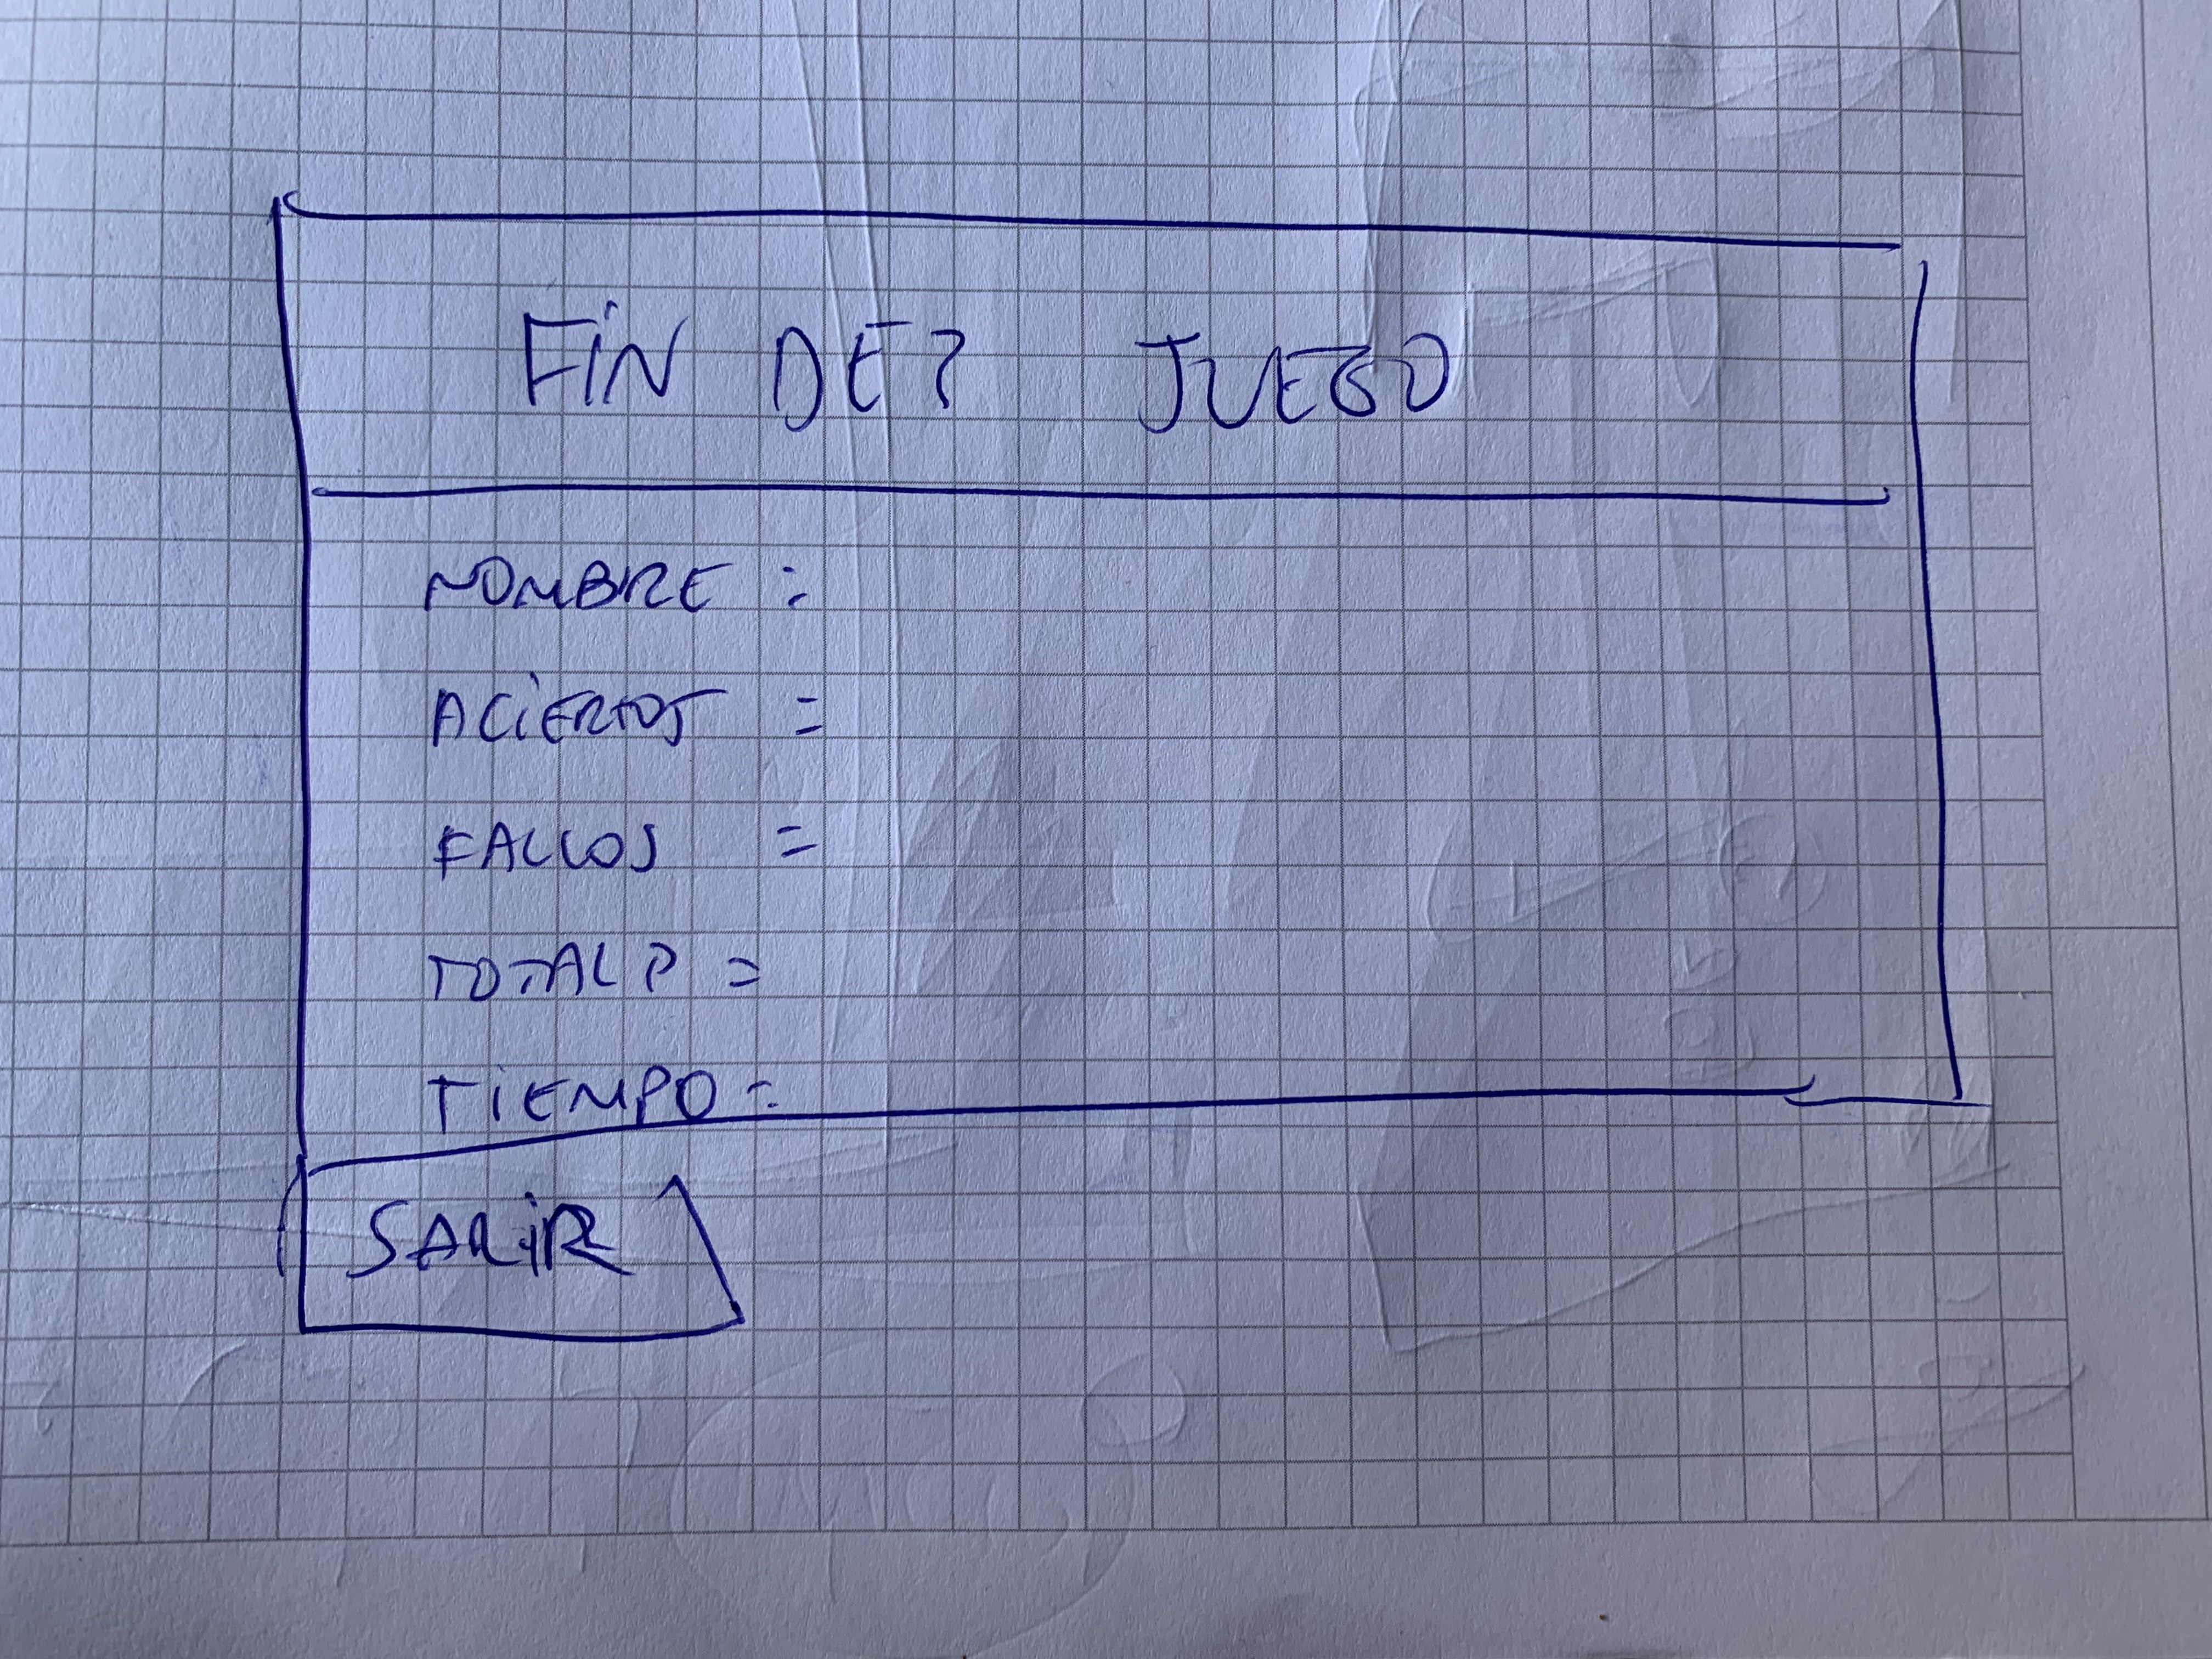 FIN DEL JUEGO
NOMBRE :
ACIERTOS =
FALLOS =
TOTAL P =
TIEMPO :
SALIR